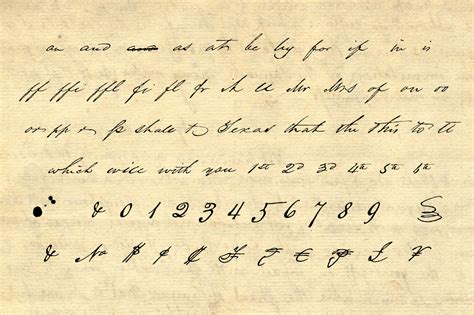 an and and as at be by for if in is
ff ffi ffl fi fl fr it ll Mr Mrs of on oo
or pp r ss shall t Texas that the this to tt
which will with you 1st 2d 3d 4th 5th 6th
& 0 1 2 3 4 5 6 7 8 9
& No $ ¢ ₤ €